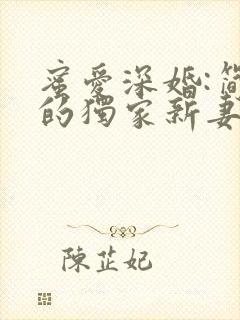 蜜愛深婚:簡
的獨家新妻
陳芷妃